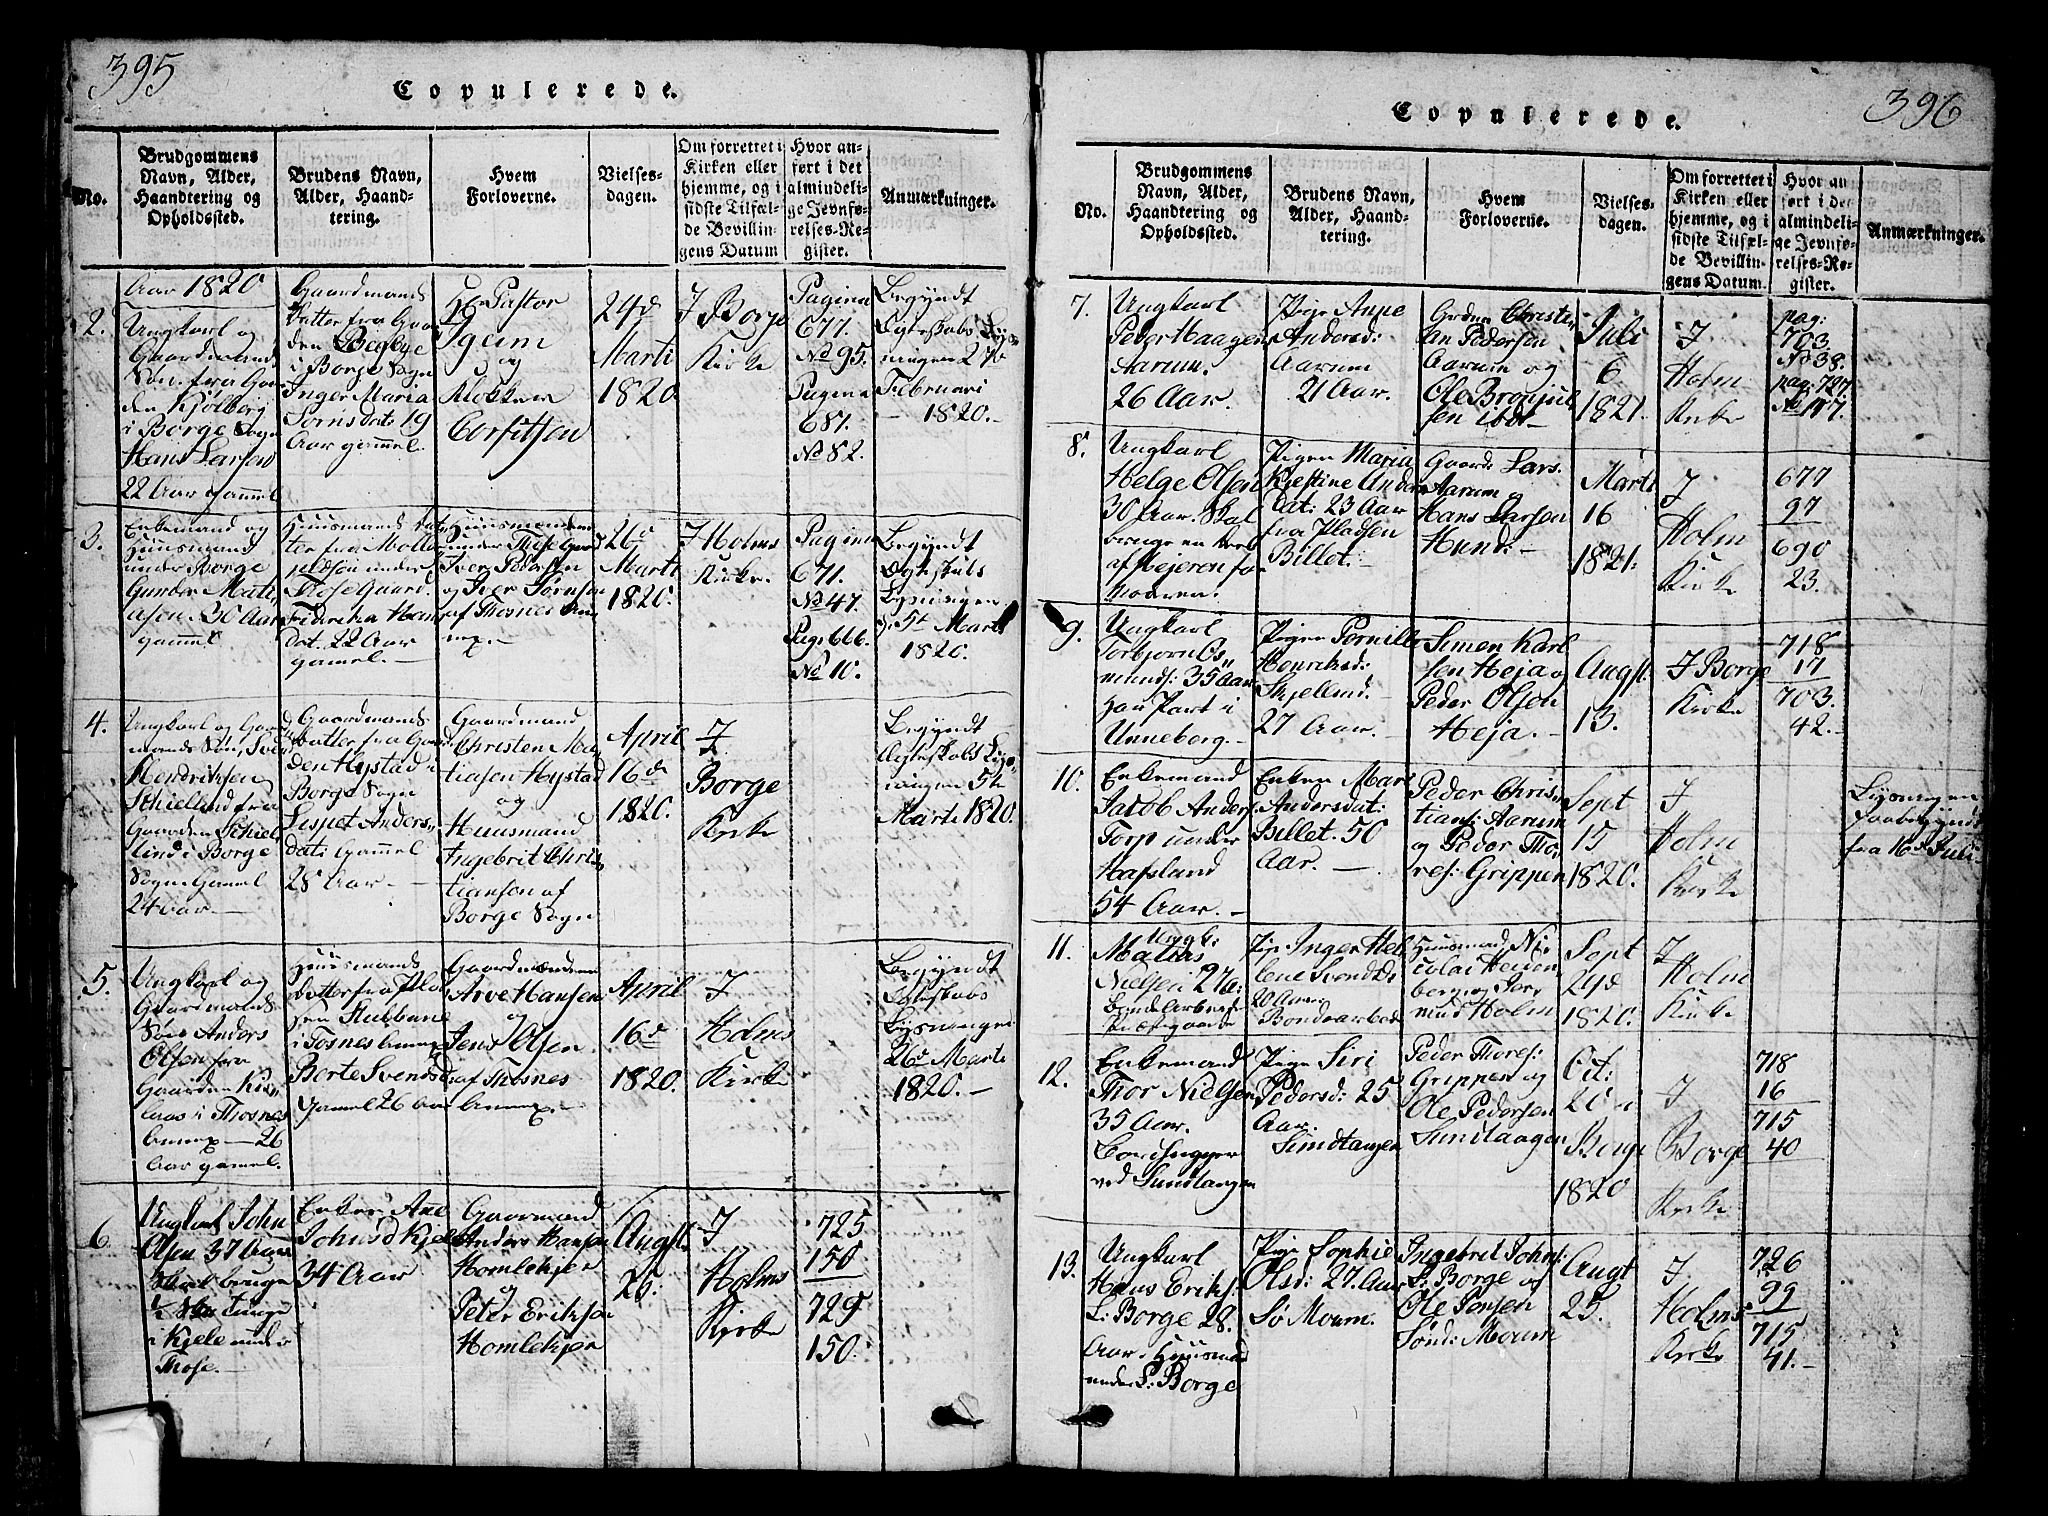 395
Copulerede.
No.
Brudgommens
Navn, Alder,
Haandtering og
Opholdssted.
Brudens Navn,
Alder, Haand-
tering.
Hvem
Forloverne.
Vielses-
dagen.
Om forrettet i
Kirken eller
hjemme, og i
sidste Tilfæl-
de Bevillin-
gens Datum
Hvor an-
ført i det
almindeli-
ge Jevnfø-
relses-Re-
gister.
Anmærkninger.
Aar 1820
2.
Ungkarl og
Gaardmands
Søn fra Gaar
den Kjølberg
i Borge Sogn
Hans Larsen
22 Aar gammel
Gaardmands
Datter fra Gaar
den Begbye
i Borge Sogn
Inger Maria
Sørnsdatr 19
Aar gammel.
Hr Pastor
og
Klokker
Corfitsen
24d
Marti
1820.
I Borge
Kirke
Pagina
677.
No 95.
Pagina
687.
No 82.
Begyndt
Egteskabs Lys
ningen 27d
Februari
1820.
3.
Enkemand og
Huusmand
under Borge
Gunder Mati
asen. 30 Aar
gammel
Huusmands dat
ter fra Mølle
pladsen under
Thosegaard.
Friderika Hans
dat. 22 Aar
gamel.
Huusmændene
under Thosegaard
Iver Pedersen
og Iver Sørnsen
af Thosnes An
nex.
26d
Marti
1820.
I Holms
Kirke.
Pagina
671.
No 47.
Pag: 666.
No 10.
Begyndt
Egteskabs
Lysningen
d. 5t Marti
1820.
4.
Ungkarl og Gaard
mands Søn, Svend
Hendriksen
Schiellind fra
Gaarden Schiel
lind i Borge
Sogn Gamel
24 Aar.
Gaardmands
Datter fra Gaar
den Hystad i
Borge Sogn
Lispet Anders
dats gammel
28 Aar.
Gaardmand
Christen Ma
tiasen Hystad
og
Huusmand
Ingebrit Chris
tiansen af
Borge Sogn
April
16d
1820.
I
Borge
Kirke
Begyndt
Egteskabs Lys
ningen 5te
Marti 1820.
5.
Ungkarl og
Gaardmands
Søn Anders
Olsen fra
Gaarden
i Thosnes
Annex 26
Aar gamel.
Huusmands
Datter fra Plad
sen Stubbane
i Tosnes Annex
Borte Svensd:
Gamel 26 Aar
Gaardmændene
Arve Hansen
og
Jens Olsen
af Thosnes
Annex.
April
16d
1820.
I
Holms
Kirke
Begyndt
Egteskabs
Lysningen
26d Marti
1820.
6.
Ungkarl John
Olsen 37 Aar
Skal bruge
i Kjele under
Those.
Enken Ane
Johnsd Kjele
34 Aar
Gaarmand
Anders Hansen
Homlekjer
og
Peter Eriksen
Homlekjer
Augst
26.
I
Holms
Kirke
725
150
729
150.
396
Copulerede.
No.
Brudgommens
Navn, Alder,
Haandtering og
Opholdssted.
Brudens Navn,
Alder, Haand-
tering.
Hvem
Forloverne.
Vielses-
dagen.
Om forrettet i
Kirken eller
hjemme, og i
sidste Tilfæl-
de Bevillin-
gens Datum.
Hvor an
ført i det
almindeli-
ge Jevnfø-
relses-Re-
gister.
Anmærkninger.
7.
Ungkarl
Peder Haagen
Aarum.
26 Aar.
Pige Anne
Andersd:
Aarum
21 Aar.
Christi
an Pedersen
Aarum og
Ole Brynjul
sen ibdt
Juli
6
1821.
I
Holm
Kirke
pag:
703.
No 38.
pag: 727.
No 117.
8.
Ungkarl
Helge Olsen
30 Aar. Skal
bruge en Deel
af Hejeren for
Pigen Maria
Kjestine Anders
dat: 23 Aar
fra Pladsen
Billet:
Gaard: Lars
Aarum og
Hans Larsen
Hund:
Marti
16
1821:
I
Holm
Kirke
677
97
690
23.
9.
Ungkarl
Torbjørn Os
munds: 35 Aar
har Part i
Unneborg.
Pigen Pernille
Henriksd:
Skjellind.
27 Aar.
Simen Karl
sen Heja og
Peder Olsen
Heja.
Augst
13.
I Borge
Kirke
718
17
703.
42.
10.
Enkemand
Jacob Anders
Torp under
Hafslund
54 Aar.
Enken Mari
Andersdat:
Billet. 50
Aar.
Peder Chris
tians: Aarum
og Peder Tho
res: Grippen
Sept
15
1820.
I
Holm
Kirke
Lysningen
fra 16d Juli
11.
Ungk:
Matias
Nielsen 27 a:
Bonde Arbeid
Pig: Inger Hel
lene Svendsd:
20 Aar
Bondearbeid
Huusmand Ni
colai Heiden
berg og Sør
mund Holm
Sept
29d
1820.
I
Holm
Kirke
12.
Enkemand
Thor Nielsen
35 Aar.
ved Sundtangen
Pige Siri
Pedersd: 25
Aar.
Sundtangen
Peder Thores:
Grippen og
Ole Pedersen
Sundtaagen
Oct:
20 i
Borge
1820
I
Borge
Kirke
718
16
715
40
13.
Ungkarl
Hans Eriks:
L: Borge 28.
Aar. Huusmand
under S: Borge
Pige Sophie
Olsd: 27. Aar
Sø Moum.
Ingebrit John:
S: Borge og
Ole Jensen
Sønd: Moum
Augt
25.
I
Holms
Kirke
726
99
715
41.